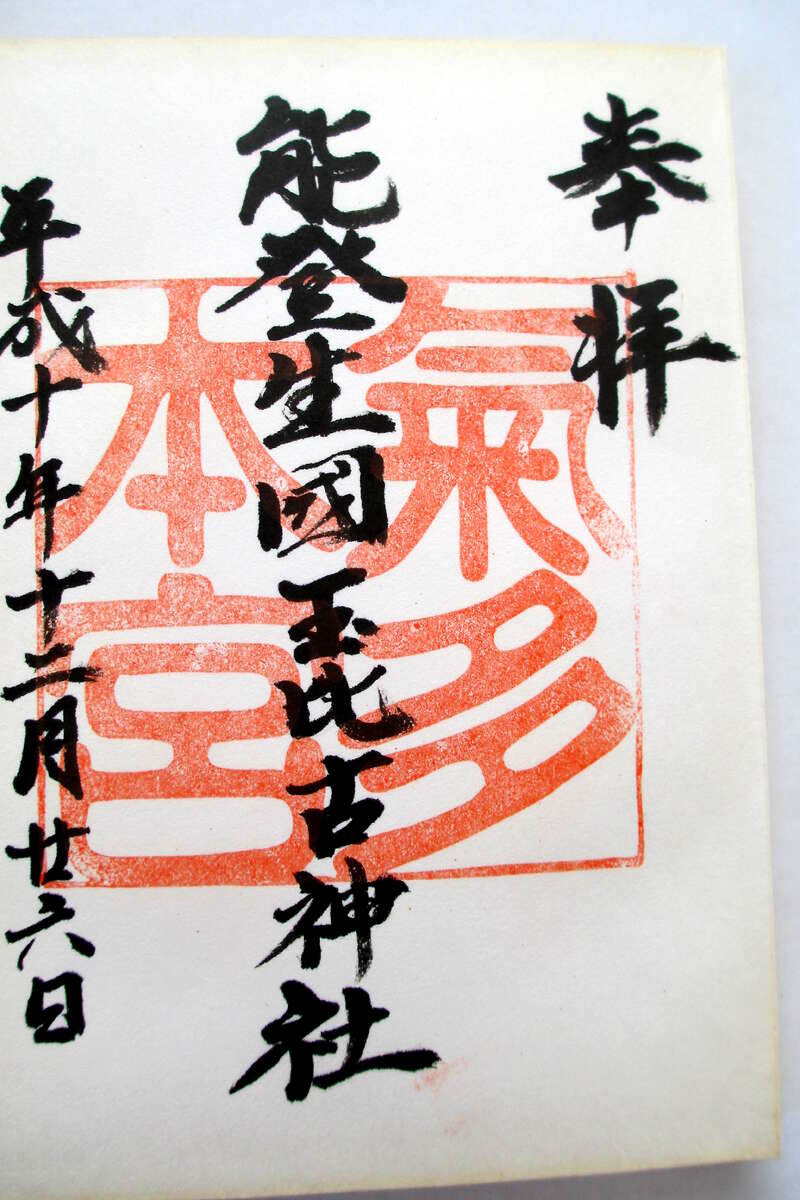 奉拝
能登生國玉比古神社
平成十年十二月廿六日
氣多
本宮